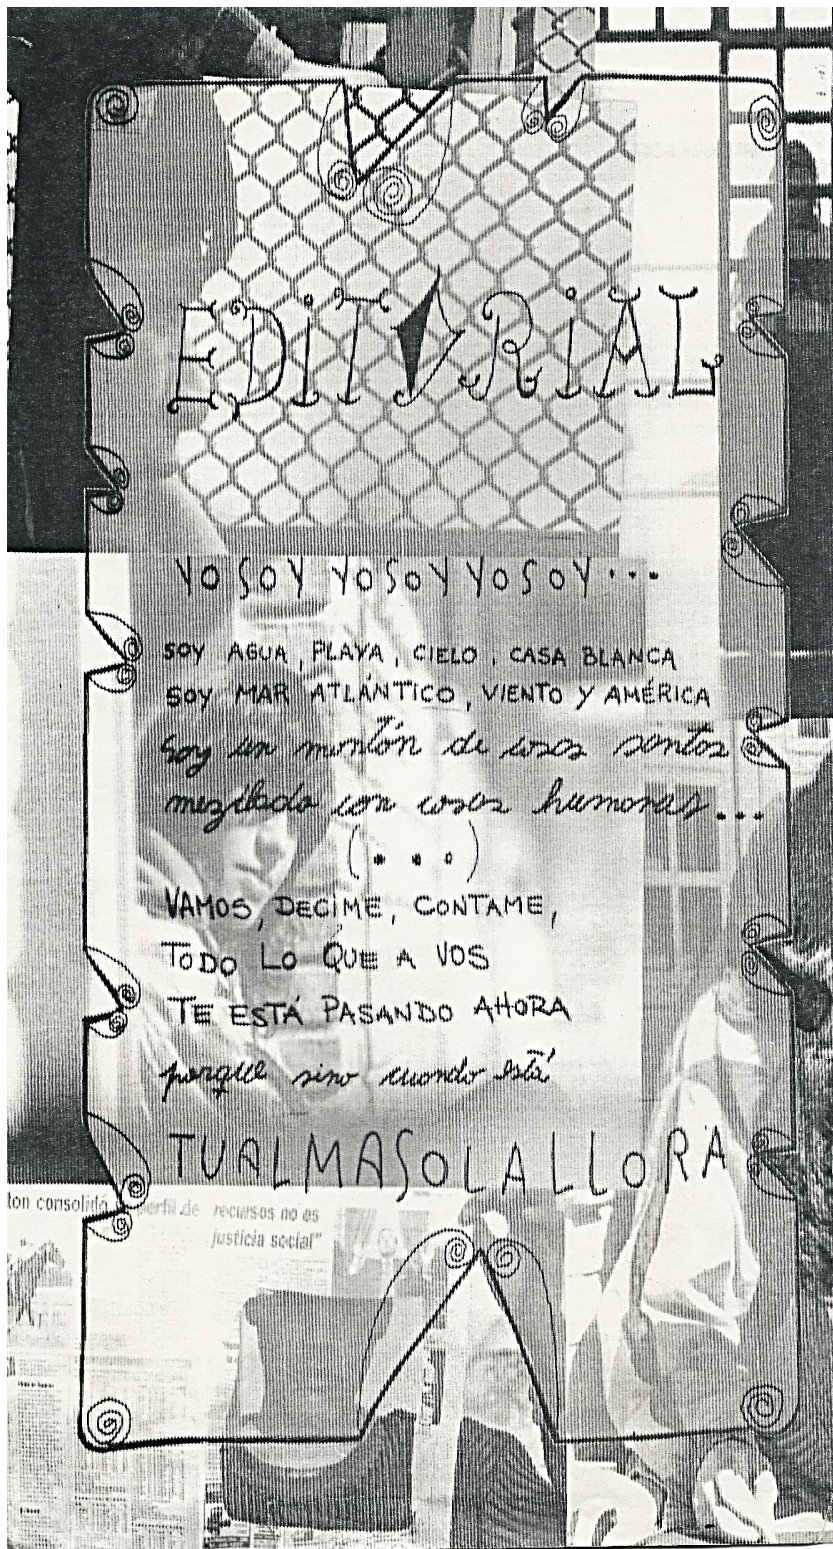 EDITORIAL
YO SOY YO SOY YO SOY...
SOY AGUA, PLAYA, CIELO, CASA BLANCA
SOY MAR ATLÁNTICO, VIENTO Y AMÉRICA
soy un montón de cosas santas
mezclado con cosas humanas...
(...)
VAMOS, DECIME, CONTAME,
TODO LO QUE A VOS
TE ESTÁ PASANDO AHORA
porque sino cuando está
TU ALMA SOLA LLORA
ton consolidó perfil de
recursos no es
justicia social"